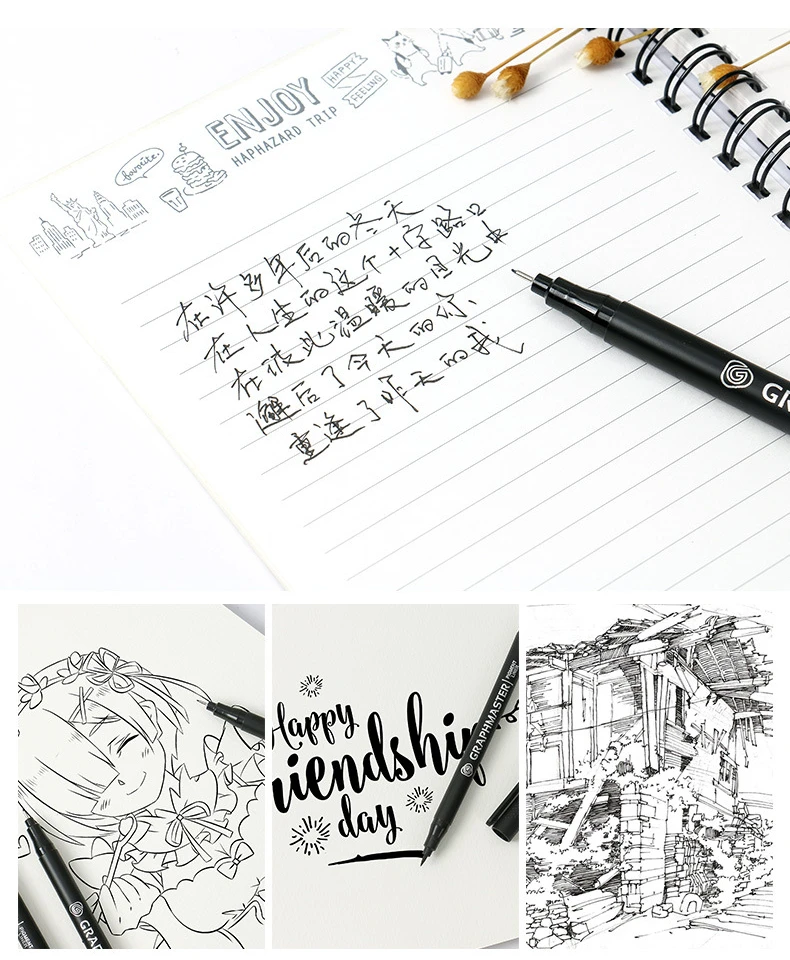 HAPPY
FEELING
ENJOY
HAPHAZARD TRIP
favorite.
在许多年后的冬天
在人生的这个十字路口
在彼此温暖的目光中
邂后了今天的你、
重逢了昨天的我
GRA
Happy
riendship
day
GRAPHMASTER
PIGMENT
LINER
GRAP
PIGMENT